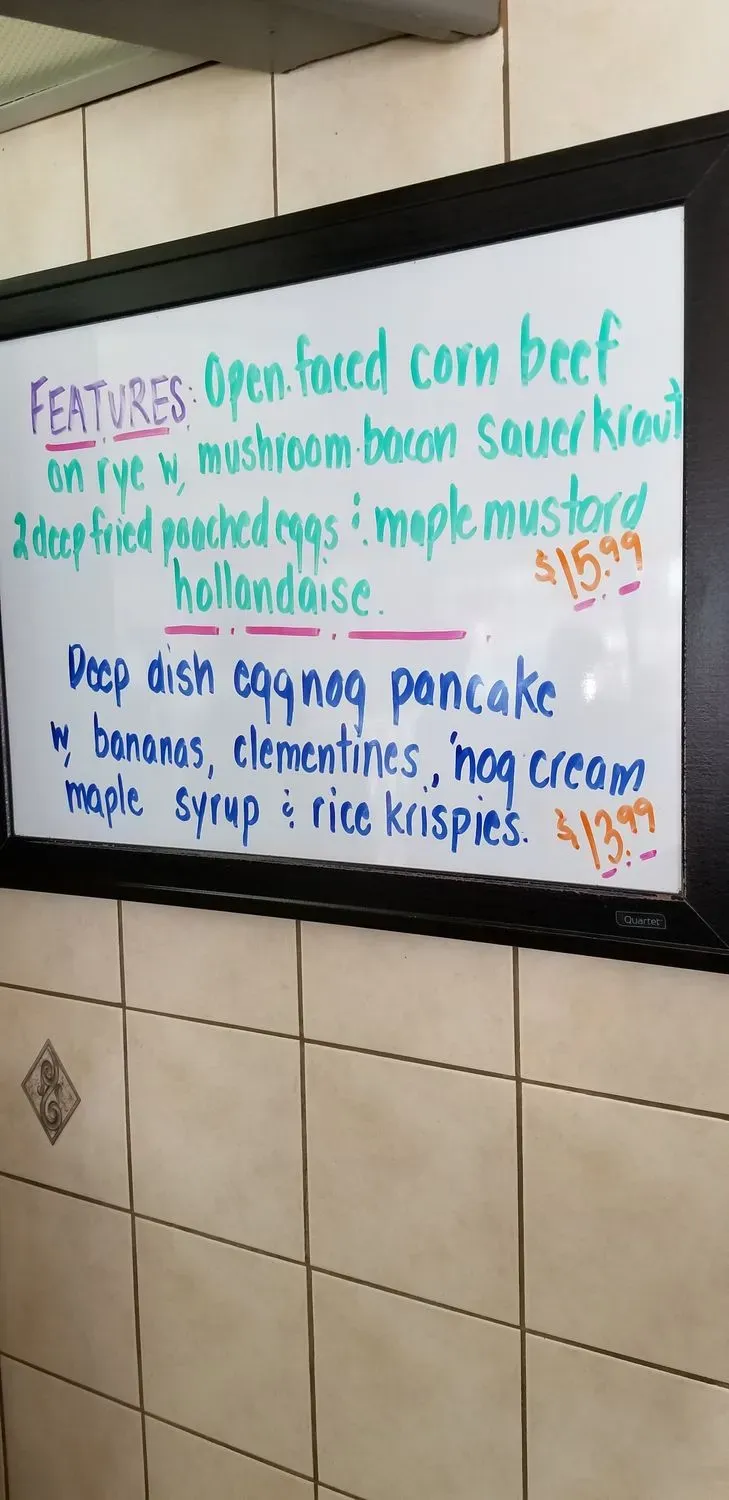 FEATURES: Open-faced corn beef
on rye w, mushroom-bacon sauerkraut
2 deep fried poached eggs & maple mustard
hollandaise.
$15.99
Deep dish eggnog pancake
w, bananas, clementines, 'nog cream
maple syrup & rice krispies.
$13.99
Quartet